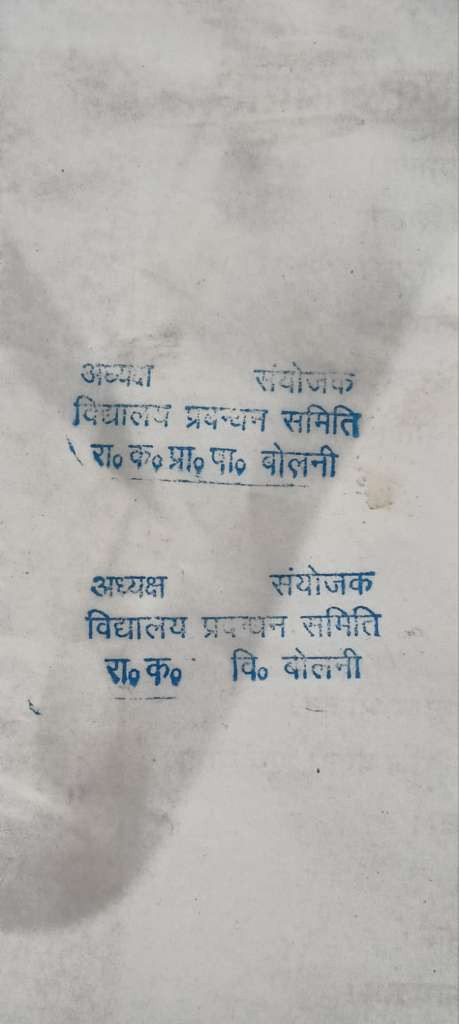 अध्यक्ष संयोजक
विद्यालय प्रबन्धन समिति
रा० क० प्रा० पा० बोलनी
अध्यक्ष संयोजक
विद्यालय प्रबन्धन समिति
रा० क० वि० बोलनी